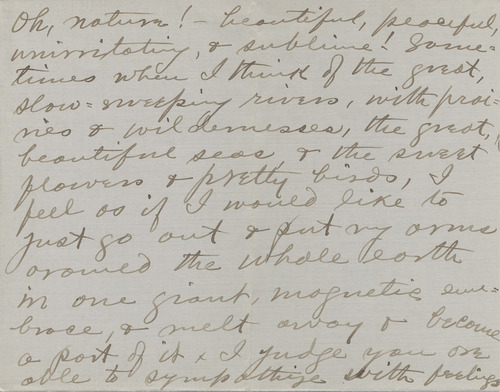 Oh, nature! – beautiful, peaceful,
unirritating, & sublime! Some-
times when I think of the great,
slow-sweeping rivers, with prai-
ries & wildernesses, the great,
beautiful seas, & the sweet
flowers & pretty birds, I
feel as if I would like to
just go out & put my arms
around the whole earth
in one giant, magnetic em-
brace, & melt away & become
a part of it x I judge you are
able to sympathize with feelings